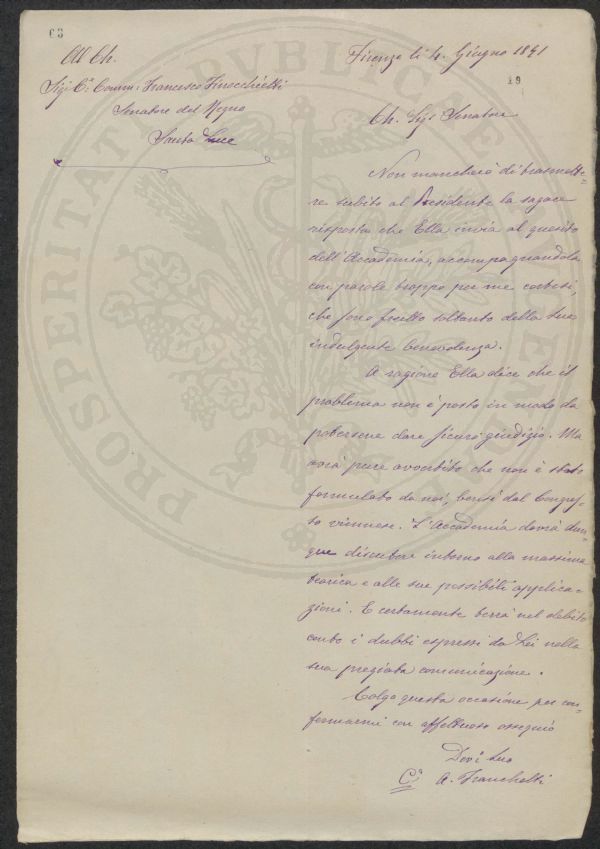 63
All Ch.
Sig.r C.e Comm: Francesco Finocchietti
Senatore del Regno
Santa Luce
Firenze li 4. Giugno 1891
19
Ch. Sigr Senatore
Non mancherò di trasmette-
re subito al Presidente la sagace
risposta che Ella invia al quesito
dell'Accademia, accompagnandola
con parole troppo per me cortesi,
che sono frutto soltanto della sua
indulgente benevolenza.
A ragione Ella dice che il
problema non è posto in modo da
potersene dare sicuro giudizio. Ma
avrà pure avvertito che non è stato
formulato da noi, bensì dal Congres-
so viennese. L'Accademia dovrà dun-
que discutere intorno alla massima
teorica e alle sue possibili applica-
zioni. E certamente terrà nel debito
conto i dubbi espressi da Lei nella
sua pregiata comunicazione.
Colgo questa occasione per con-
fermarmi con affettuoso ossequio
Dev.o Suo
C.o A. Franchetti
PROSPERITATI PVBLICAE AVGENDAE